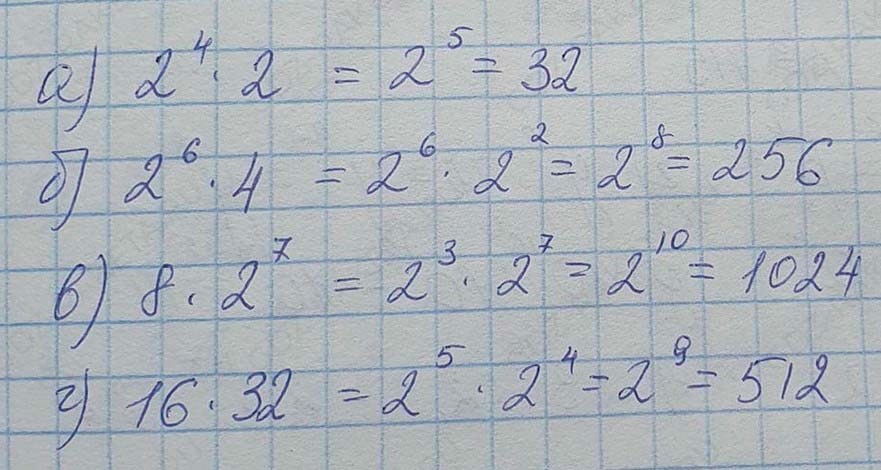 а) 2⁴ · 2 = 2⁵ = 32
б) 2⁶ · 4 = 2⁶ · 2² = 2⁸ = 256
в) 8 · 2⁷ = 2³ · 2⁷ = 2¹⁰ = 1024
г) 16 · 32 = 2⁵ · 2⁴ = 2⁹ = 512